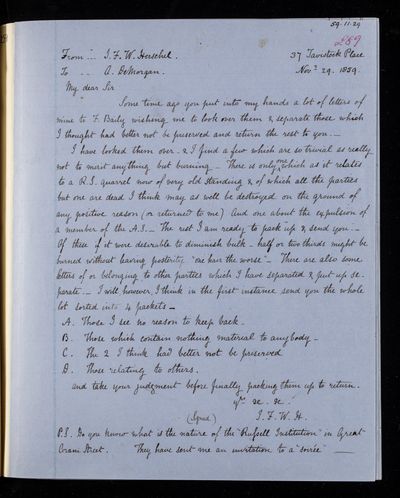 59.11.29
289
From ... J. F. W. Herschel. 37 Tavistock Place
To .. A. DeMorgan. Novr 29. 1859.
My dear Sir
Some time ago you put into my hands a lot of letters of
mine to F. Baily wishing me to look over them & separate those which
I thought had better not be preserved and return the rest to you. _
I have looked them over - & I find a few which are so trivial as really
not to merit anything but burning _ There is only one which as it relates
to a R.S. quarrel now of very old standing & of which all the parties
but one are dead I think may as well be destroyed on the ground of
any positive reason (or returned to me) And one about the expulsion of
a member of the A.S. _ The rest I am ready to pack up & send you. _
Of these if it were desirable to diminish bulk - half or two thirds might be
burned without leaving posterity "one hair the worse" _ There are also some
letters of or belonging to other parties which I have separated & put up se-
parate. _ I will however, I think in the first instance send you the whole
lot sorted into 4 packets _
A. Those I see no reason to keep back.
B. Those which contain nothing material to anybody _
C. The 2 I think had better not be preserved
D. Those relating to others.
and take your judgment before finally packing them up to return.
yrs &c. &c.
(Signed) J. F. W. H.
P.S. Do you know what is the nature of the "Russell Institution" in Great
Coram Street. They have sent me an invitation to a "soirée" __